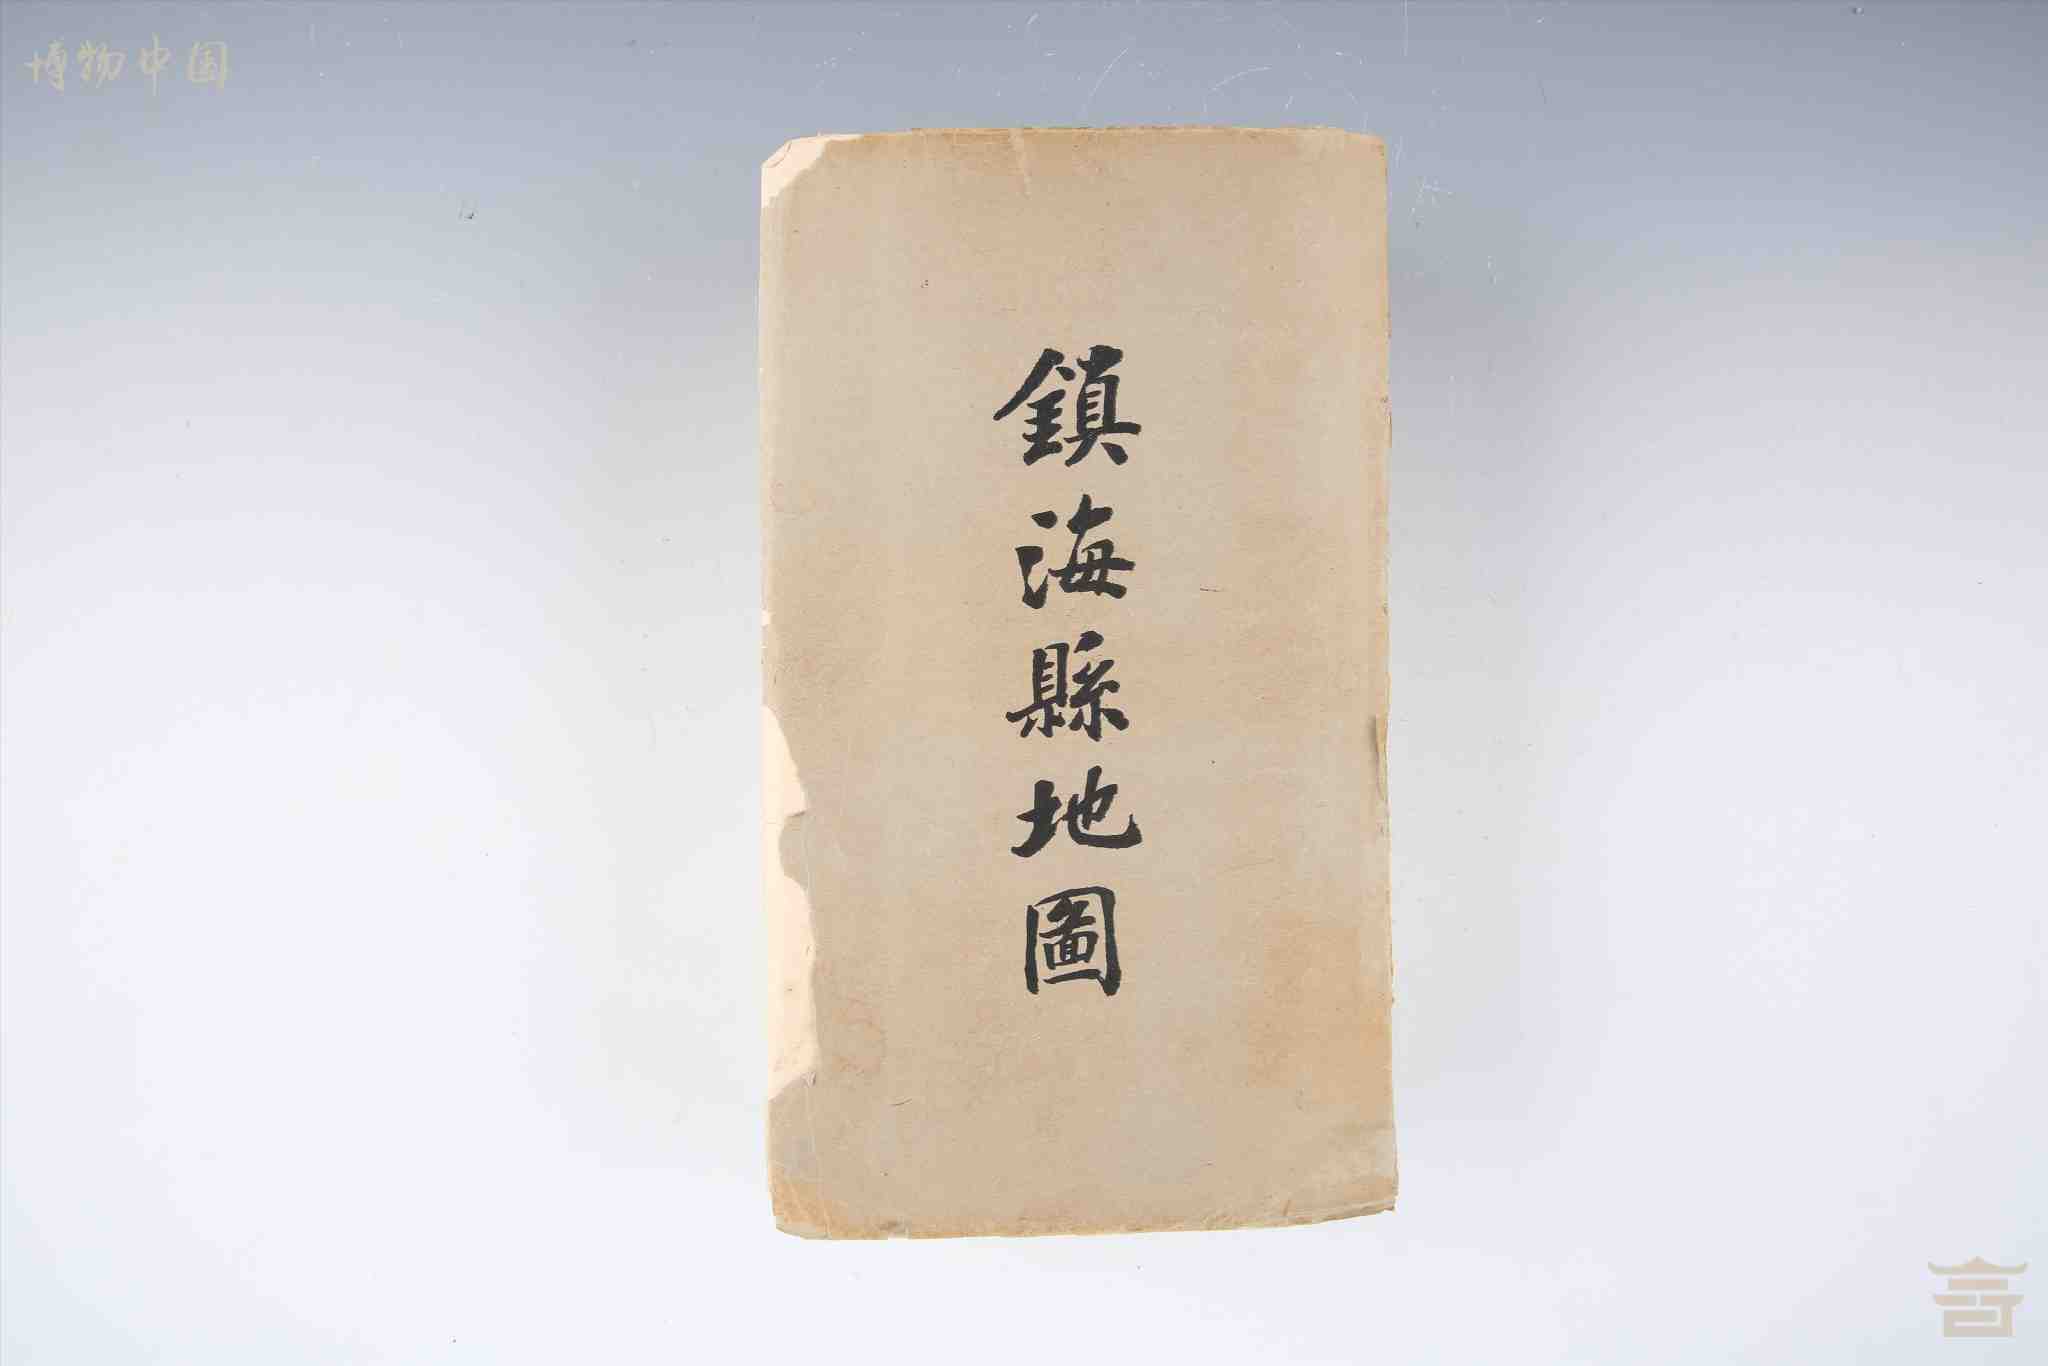 博物中国
鎮海縣地圖